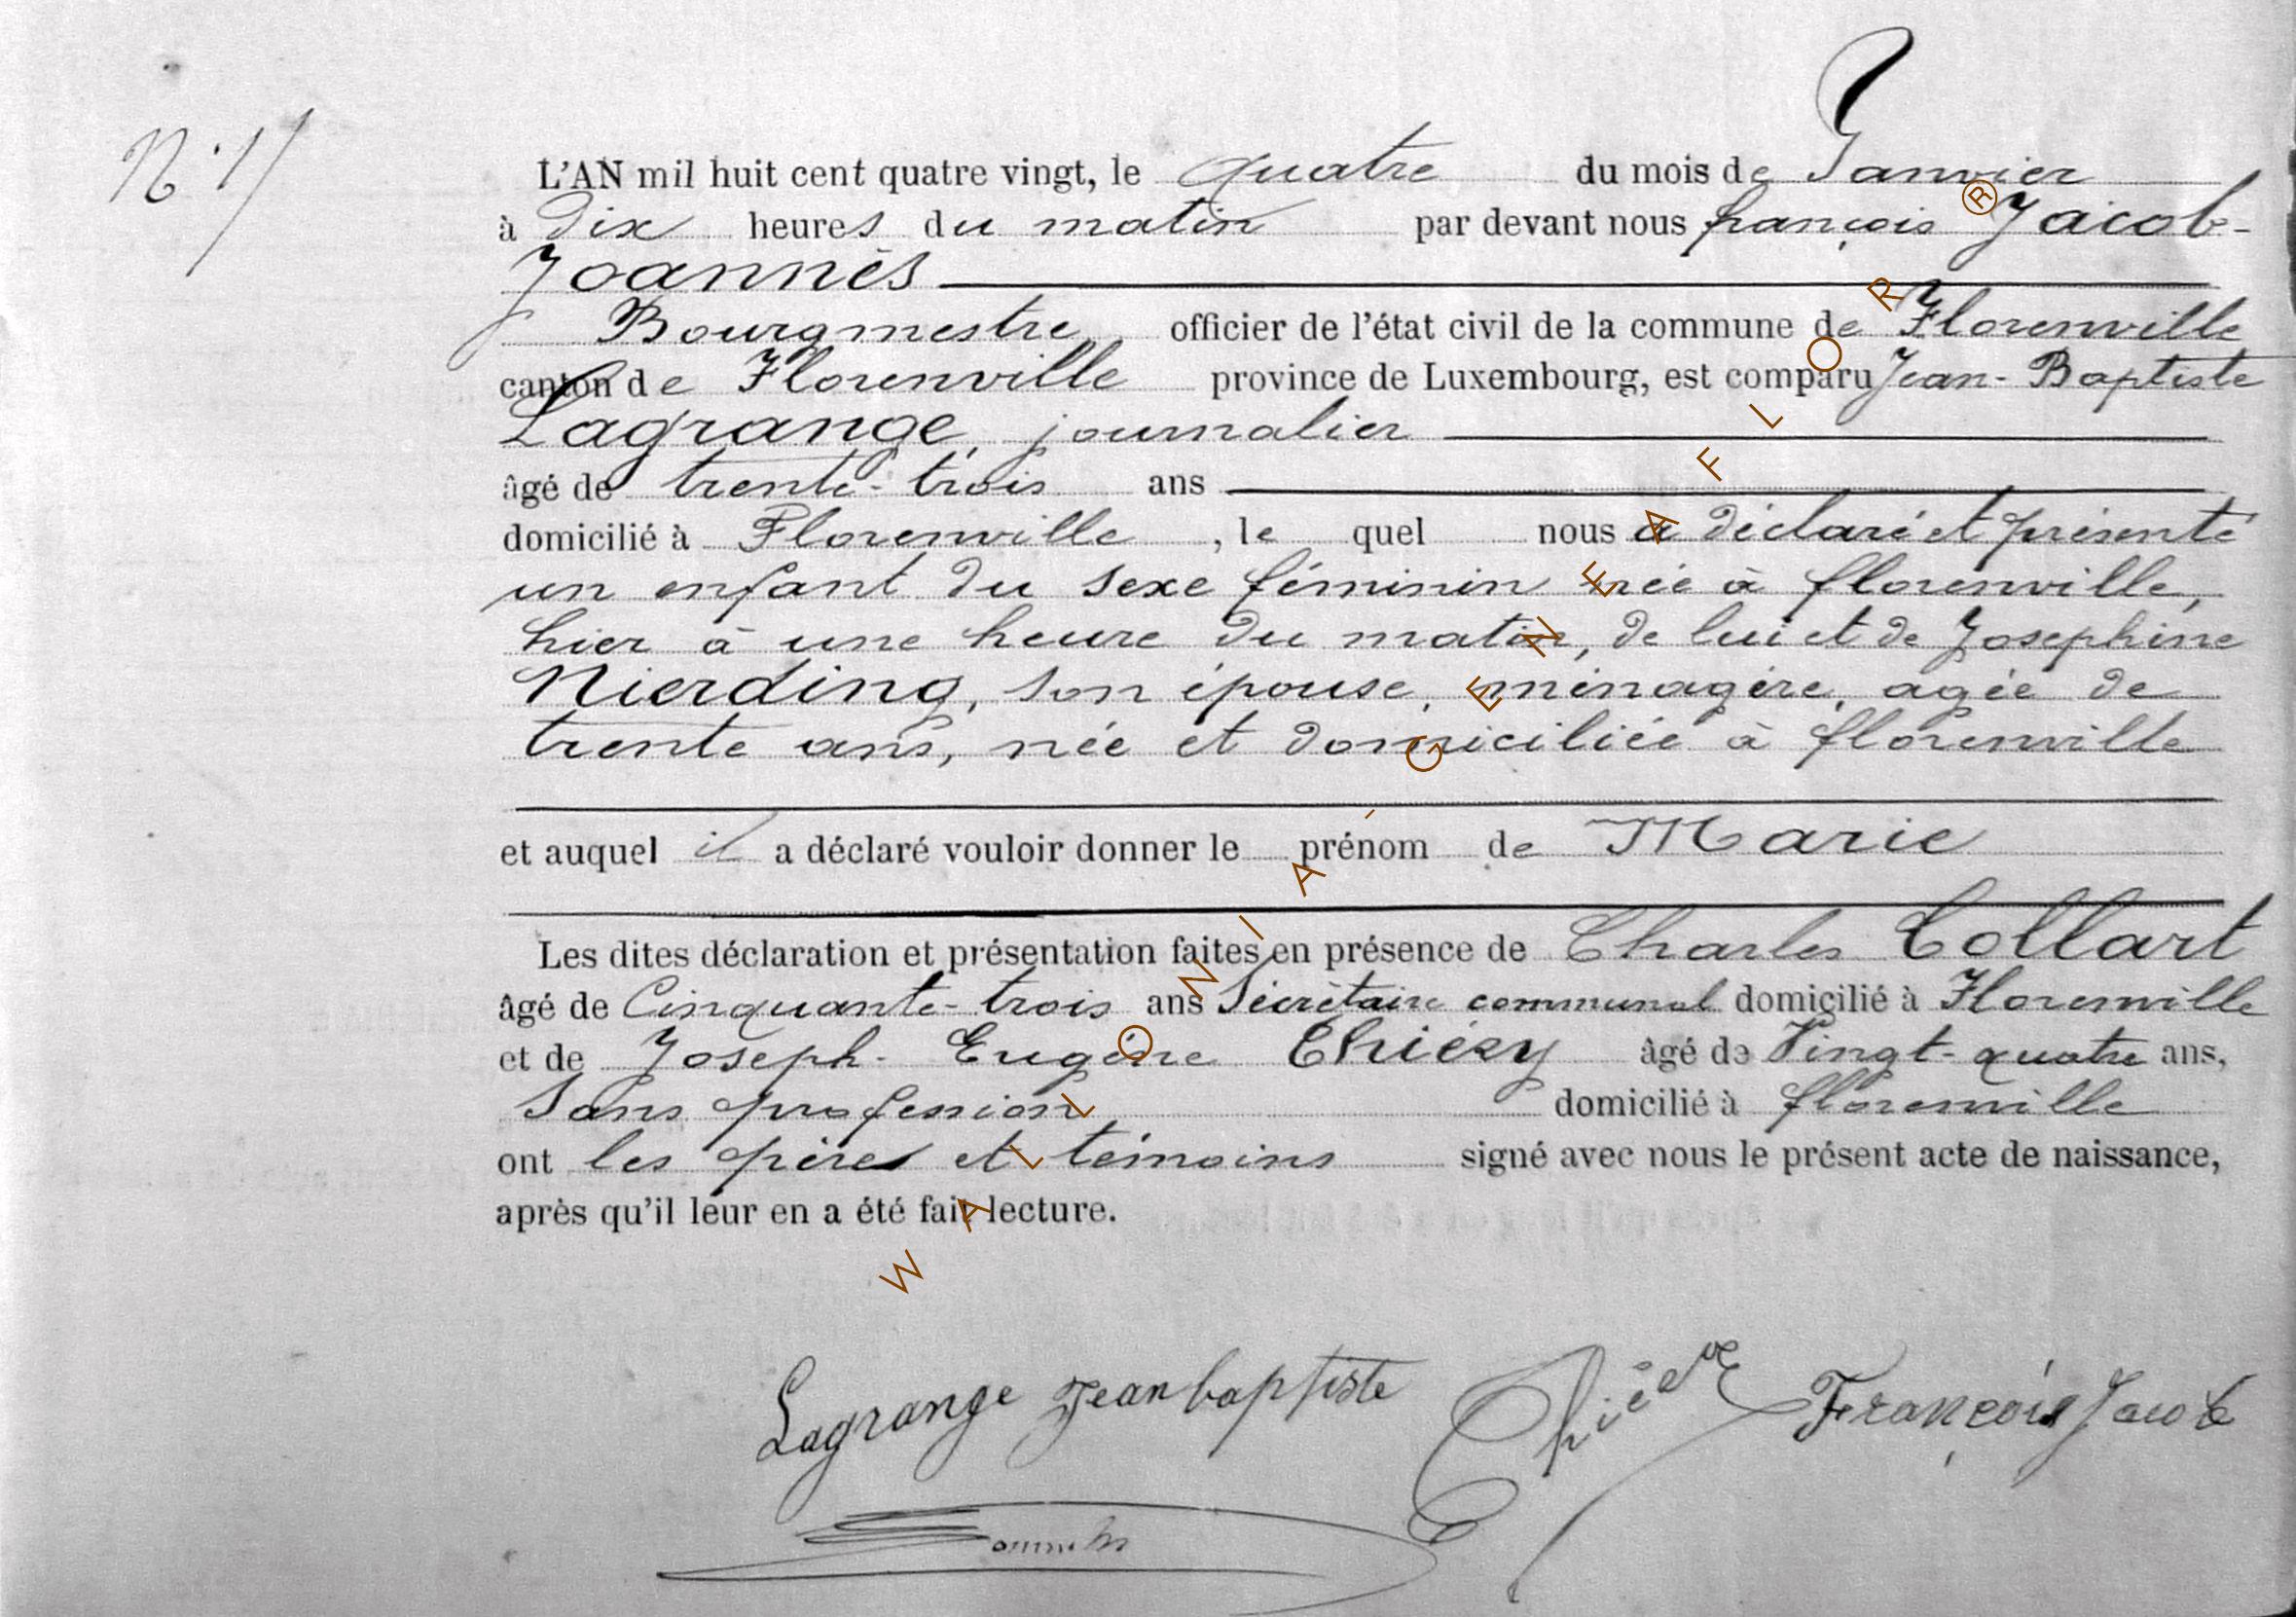 N. 1
L'AN mil huit cent quatre vingt, le quatre du mois de Janvier
à Dix heures du matin par devant nous françois Jacob-
Joannès
Bourgmestre officier de l'état civil de la commune de Florenville
canton de Florenville province de Luxembourg, est comparu Jean-Baptiste
Lagrange, journalier
âgé de trente-trois ans
domicilié à Florenville, le quel nous a déclaré et présenté
un enfant du sexe féminin née à florenville,
hier à une heure du matin, de lui et de Josephine
Nierding, son épouse, ménagère, agée de
trente ans, née et domiciliée à florenville
et auquel il a déclaré vouloir donner le prénom de Marie
Les dites déclaration et présentation faites en présence de Charles Collart
âgé de Cinquante-trois ans Secrétaire communal domicilié à Florenville
et de Joseph-Eugène Thiéry âgé de Vingt-quatre ans,
Sans profession domicilié à florenville
ont les père et témoins signé avec nous le présent acte de naissance,
après qu'il leur en a été fait lecture.
Lagrange Jean baptiste Thiéry François Jacob
WALLONIA-GENEAFLOR®